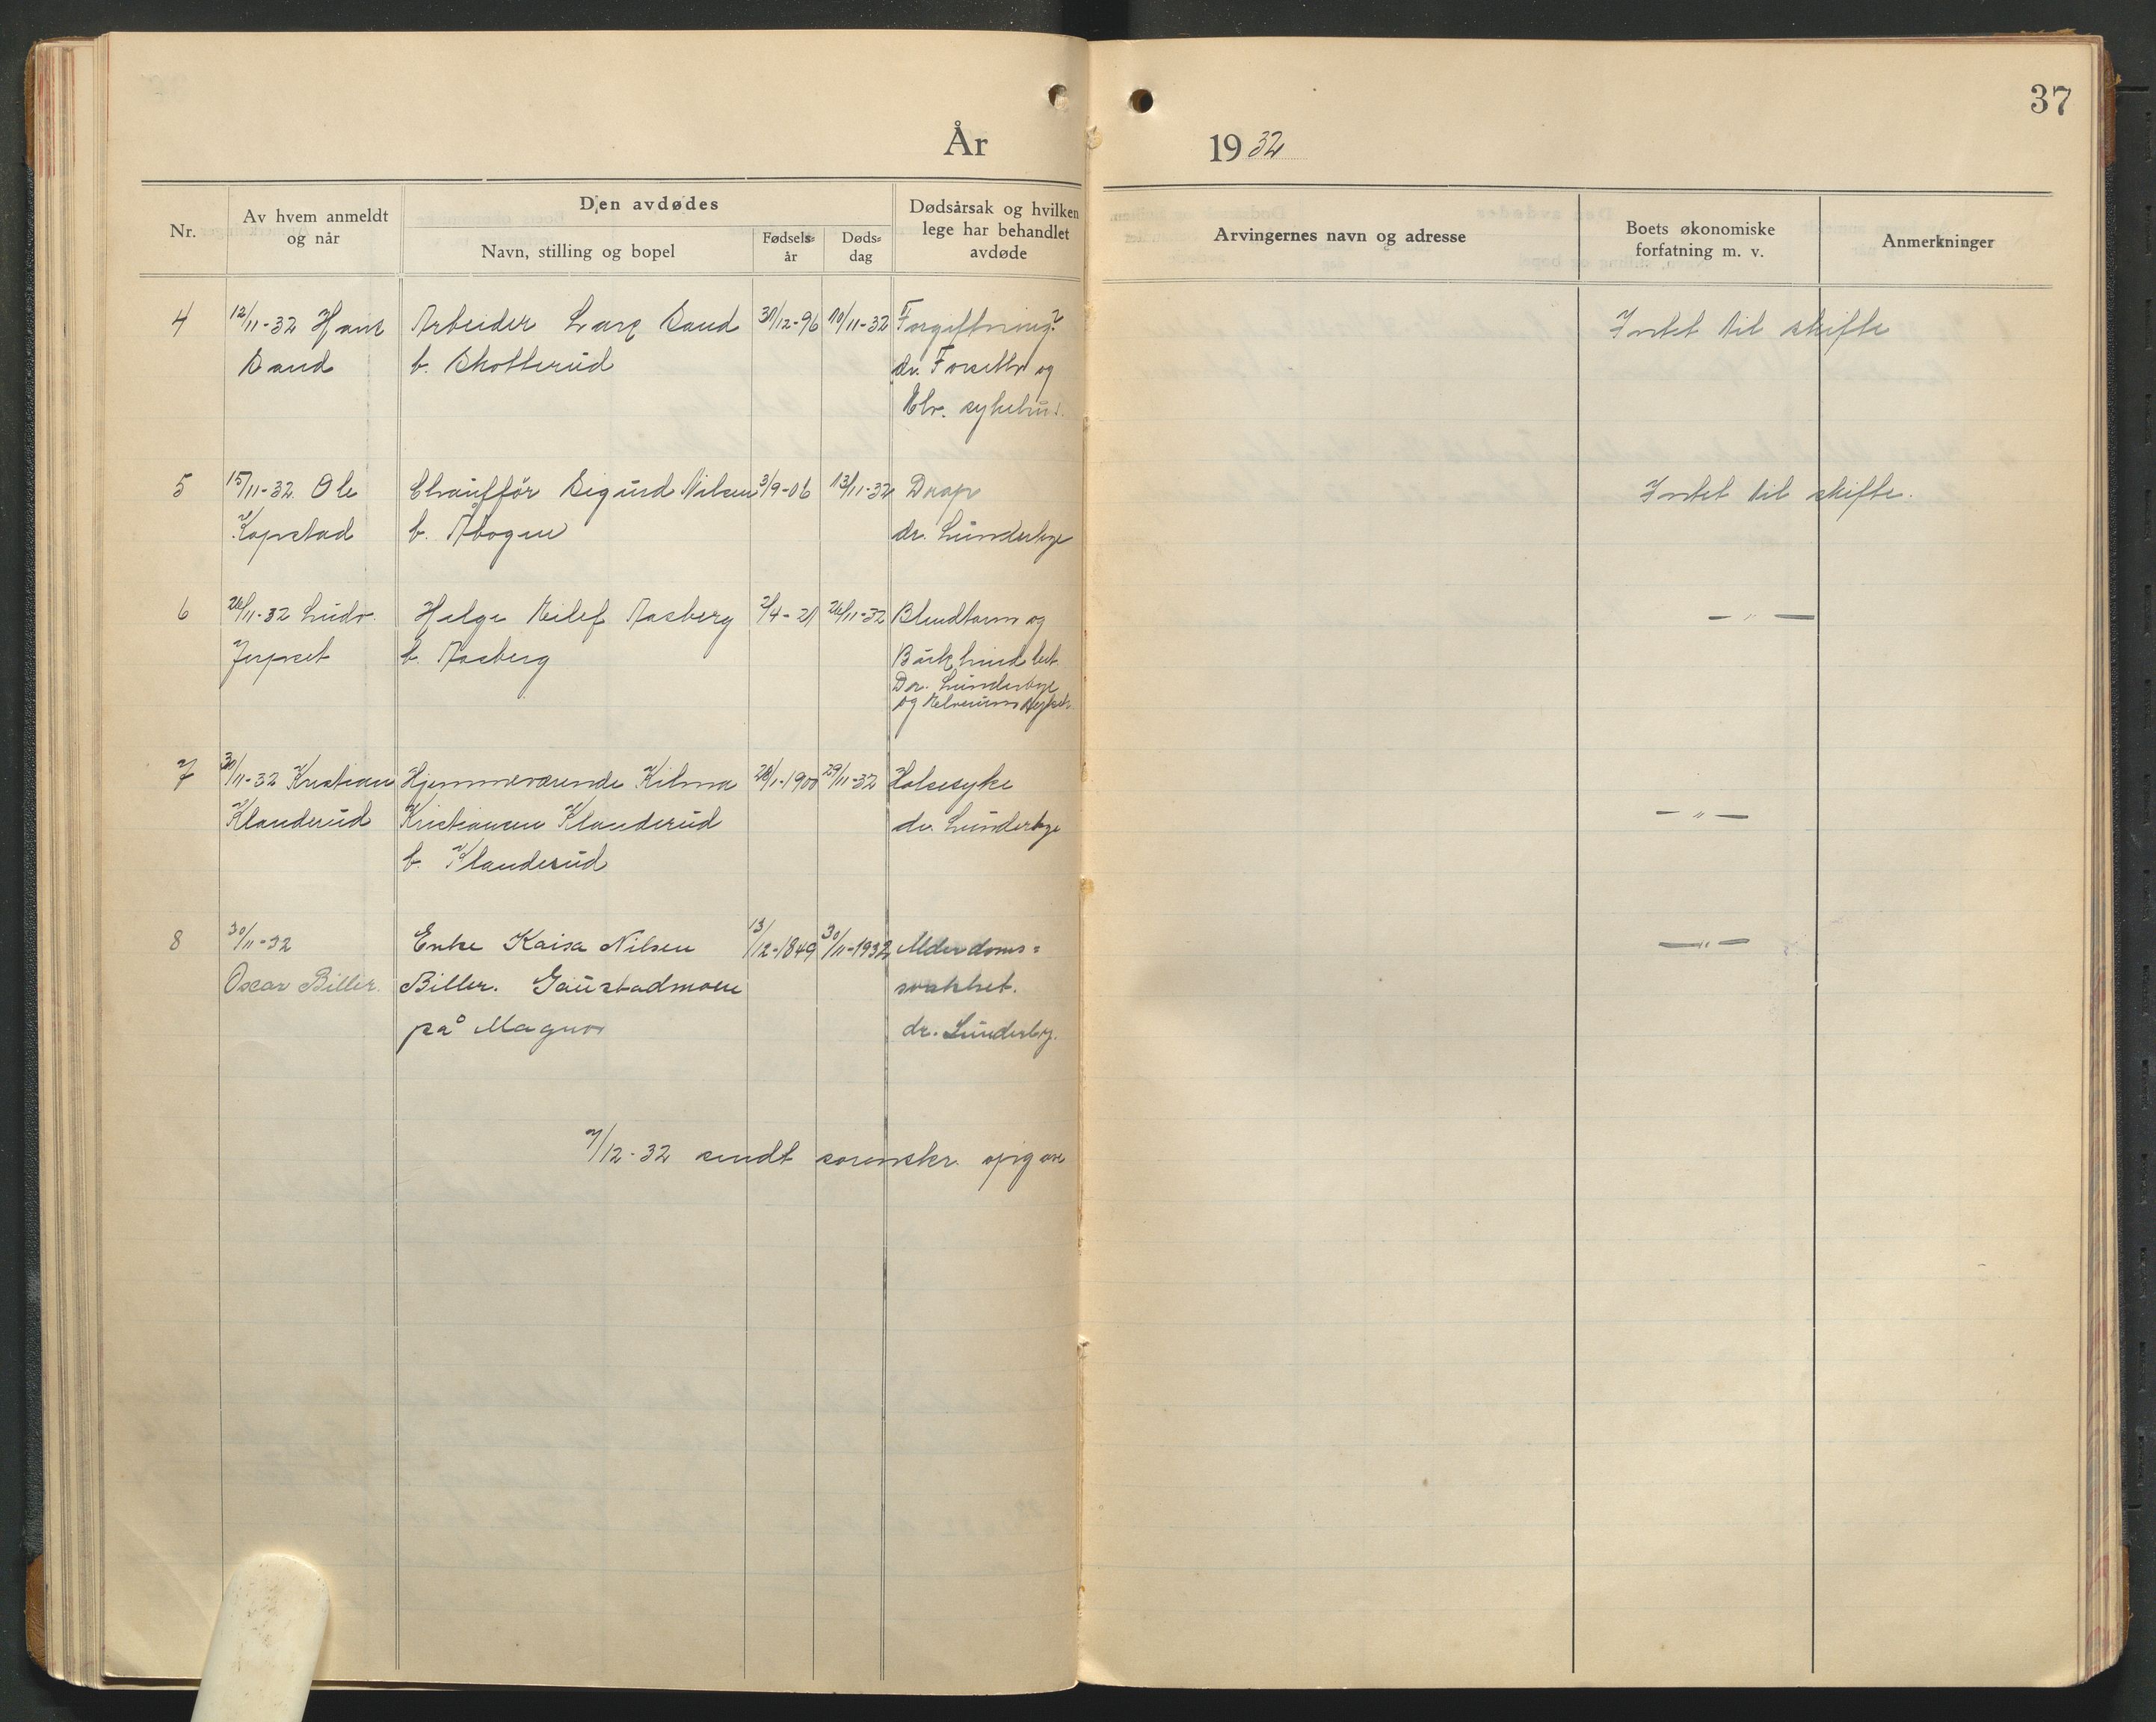 37
År 1932
Nr.
Av hvem anmeldt
og når
Den avdødes
Navn, stilling og bopel
Fødsels=
år
Døds=
dag
Dødsårsak og hvilken
lege har behandlet
avdøde
Arvingernes navn og adresse
Boets økonomiske
forfatning m. v.
Anmerkninger
4 12/11-32 Hans Arbeider Lars Sand 31/12-96 10/11-32 Forgiftning? Intet til skifte
Sand b. Skotterud dr. Forseth og
Elv. sykehus.
5 15/11-32 Ole Chauffør Sigurd Nilsen 3/9-06 13/11-32 Drap Intet til skifte.
Kopstad b. Åbogen dr. Lunderbye
6 26/11-32 Ludv. Helge Eilef Aasberg 2/4-21 26/11-32 Blindtarm og — " —
Jerpset b. Aasberg Bukhind bet.
Dr. Lunderbye
og Elverums sykeh.
7 30/11-32 Kristian Hjemmeværende Hilma 28/1-1900 29/11-32 Halsesyke — " —
Klanderud Kristiansen Klanderud dr. Lunderbye
b. Klanderud
8 30/11-32 Enke Kaisa Nilsen 13/12-1849 30/11-1932 Alderdoms= — " —
Oscar Biller. Biller. Gaustadmoen svakhet.
på Magnor dr. Lunderby.
7/12-32 sendt sorenskr. opgave